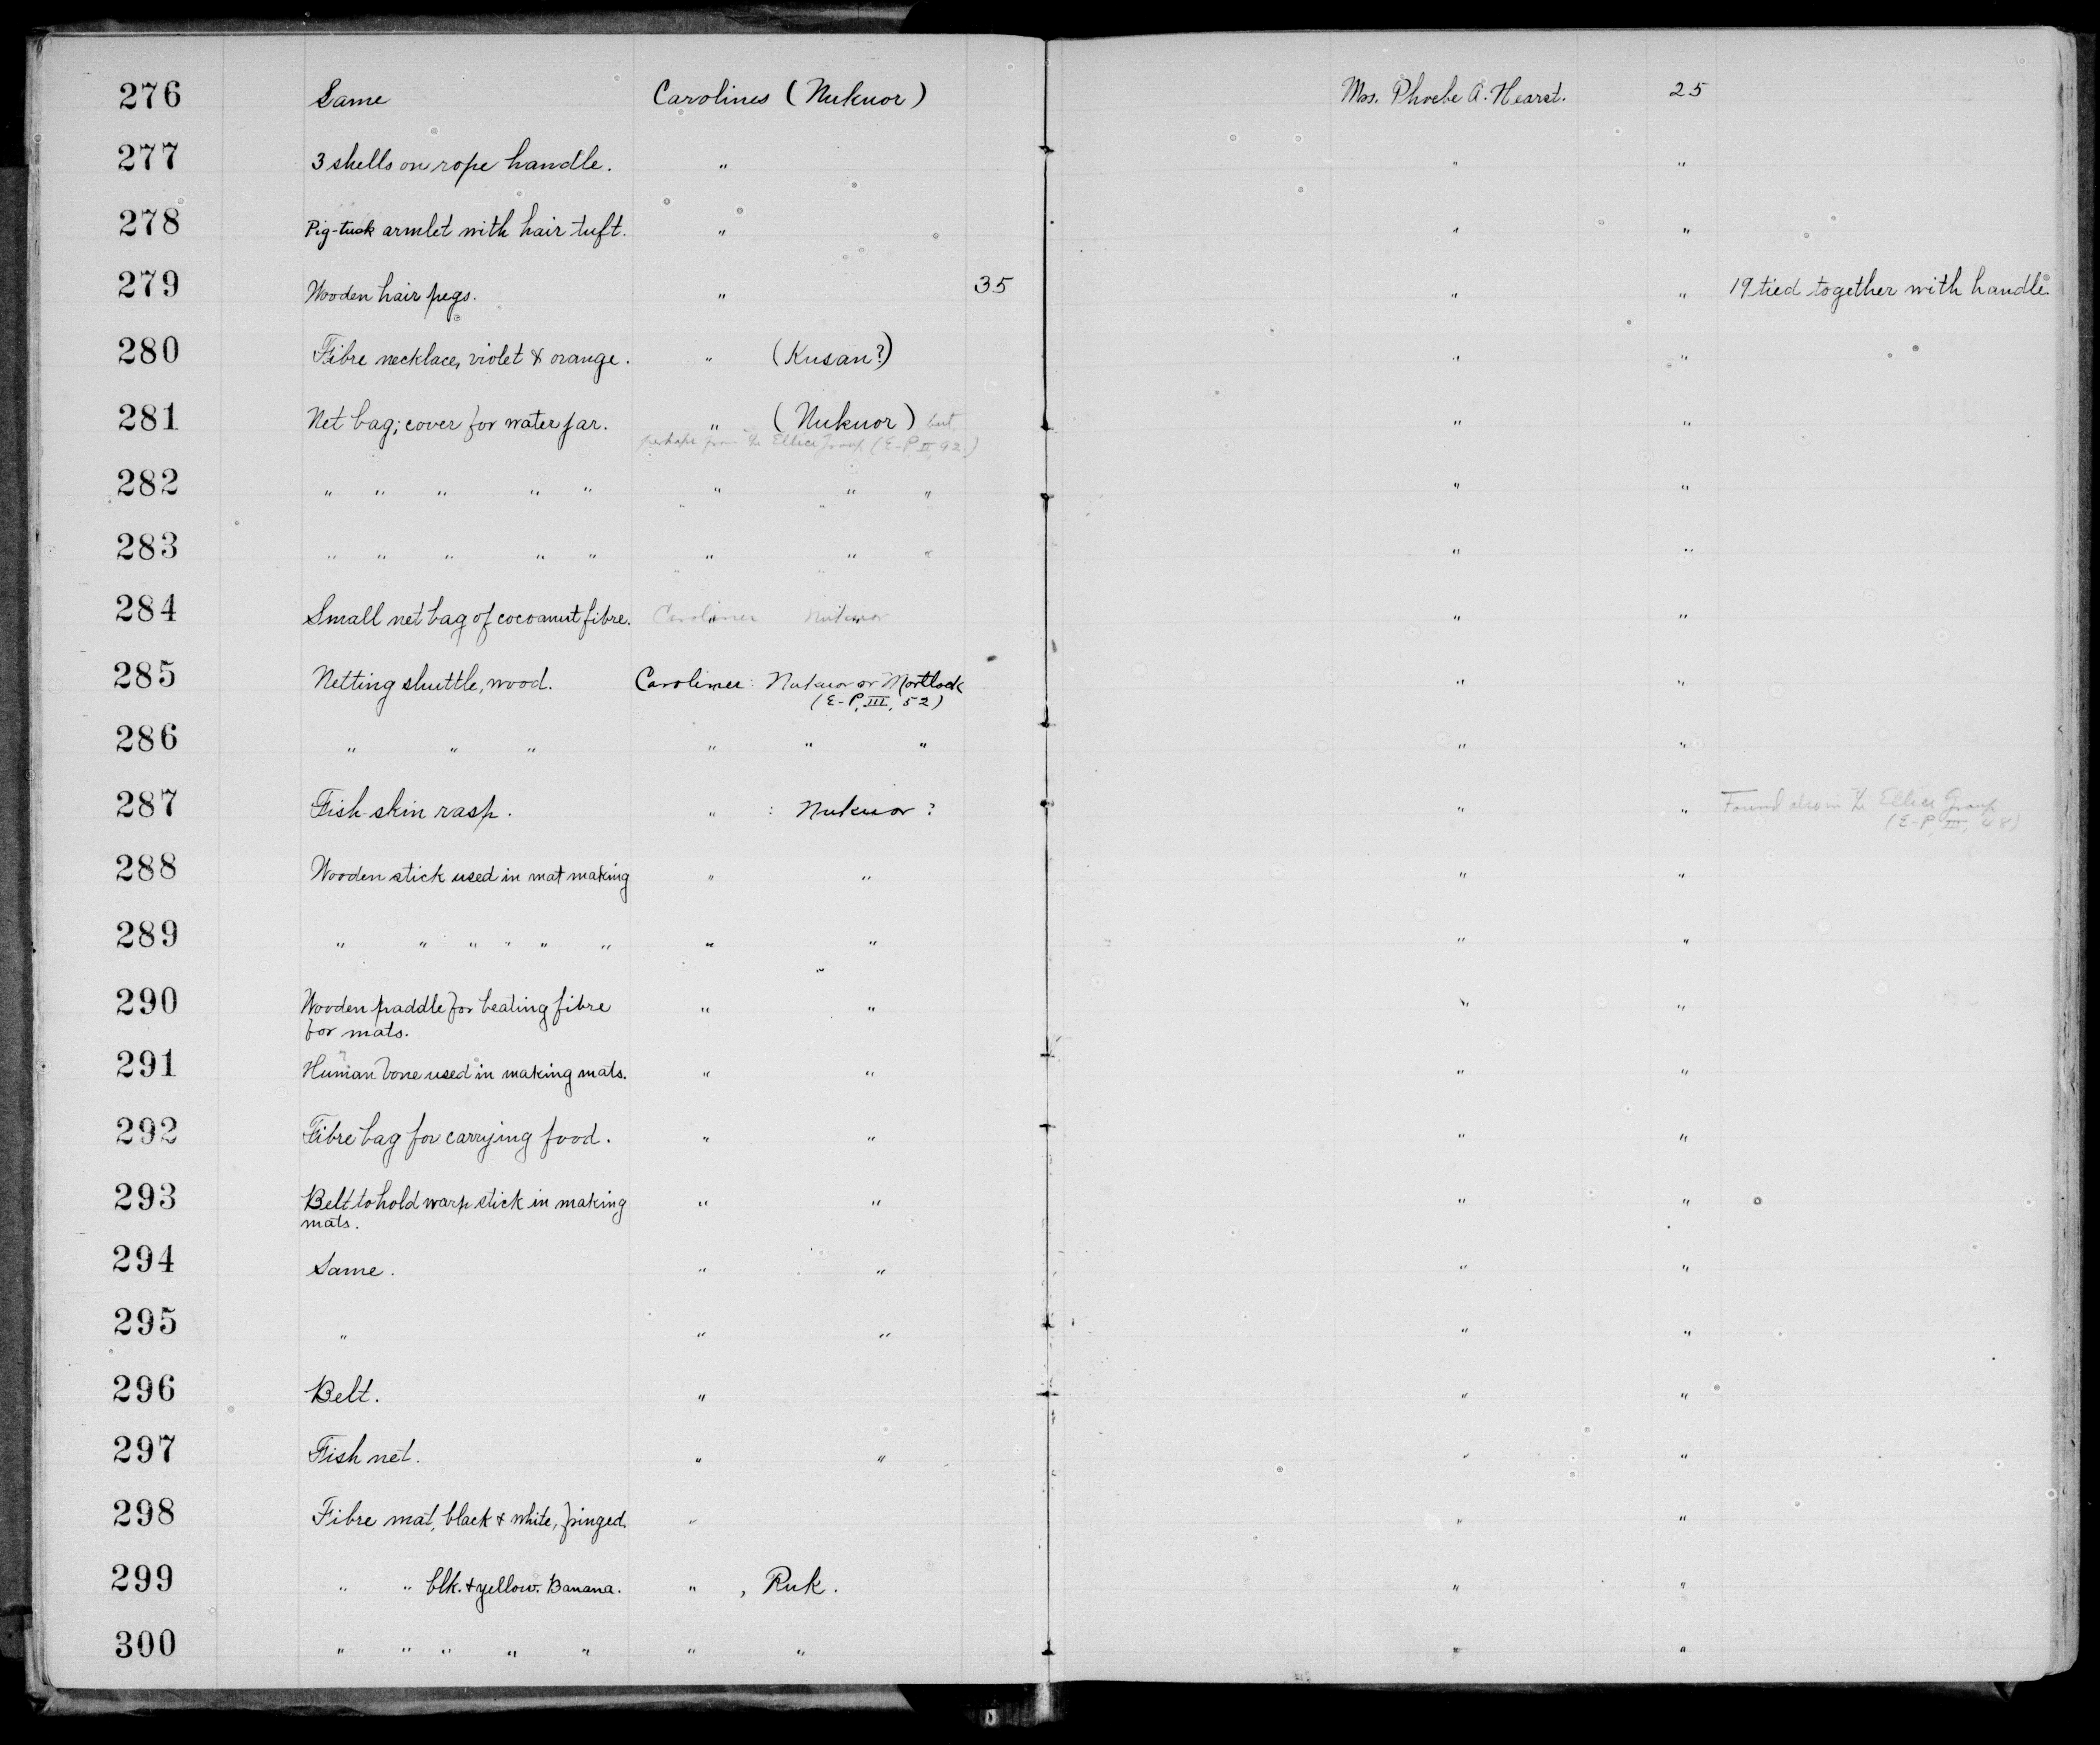 276 Same Carolines (Nukuor) Mrs. Phoebe A. Hearst. 25
277 3 shells on rope handle. " " "
278 Pig-tusk armlet with hair tuft. " " "
279 Wooden hair pegs. " 35 " " 19 tied together with handle.
280 Fibre necklace, violet & orange. " (Kusan?) " "
281 Net bag; cover for water jar. " (Nukuor) but " "
perhaps from the Ellice Group (E-P, II, 92.)
282 " " " " " " " " " "
283 " " " " " " " " " "
284 Small net bag of cocoanut fibre. Carolines Nukuor " "
285 Netting shuttle, wood. Carolines: Nukuor or Mortlock " "
(E-P, III, 52)
286 " " " " " " " "
287 Fish-skin rasp. " : Nukuor? " " Found also in the Ellice Group
(E-P, III, 48)
288 Wooden stick used in mat making " " " "
289 " " " " " " " " " "
290 Wooden paddle for beating fibre " " " "
for mats.
291 Human bone used in making mats. " " " "
?
292 Fibre bag for carrying food. " " " "
293 Belt to hold warp stick in making " " " "
mats.
294 Same. " " " "
295 " " " " "
296 Belt. " " "
297 Fish net. " " " "
298 Fibre mat, black & white, fringed. " " "
299 " " blk. & yellow. Banana. " , Ruk. " "
300 " " " " " " " " "